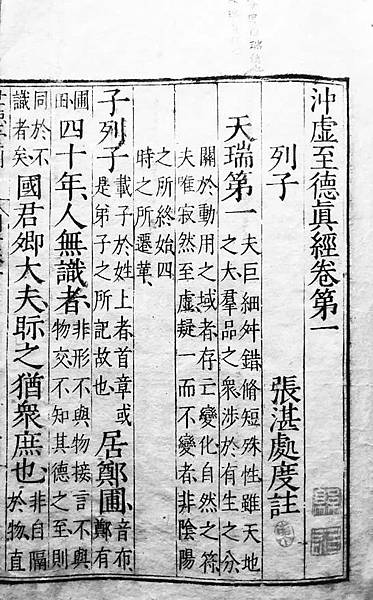 沖虛至德眞經卷第一
列子 張湛處度註
天瑞第一 夫巨細舛錯脩短殊性雖天地
之大羣品之衆涉於有生之分
關於動用之域者存亡變化自然之符
夫唯寂然至虛疑一而不變者非陰陽
之所終始四
時之所遷革
子列子 載子於姓上者首章或是弟子之所記故也 居鄭圃 音布鄭有
圃田 四十年人無識者 非形不與物接言不與物交不知其德之至則
同於不識者矣 國君卿大夫眎之猶衆庶也 非自隔於物直